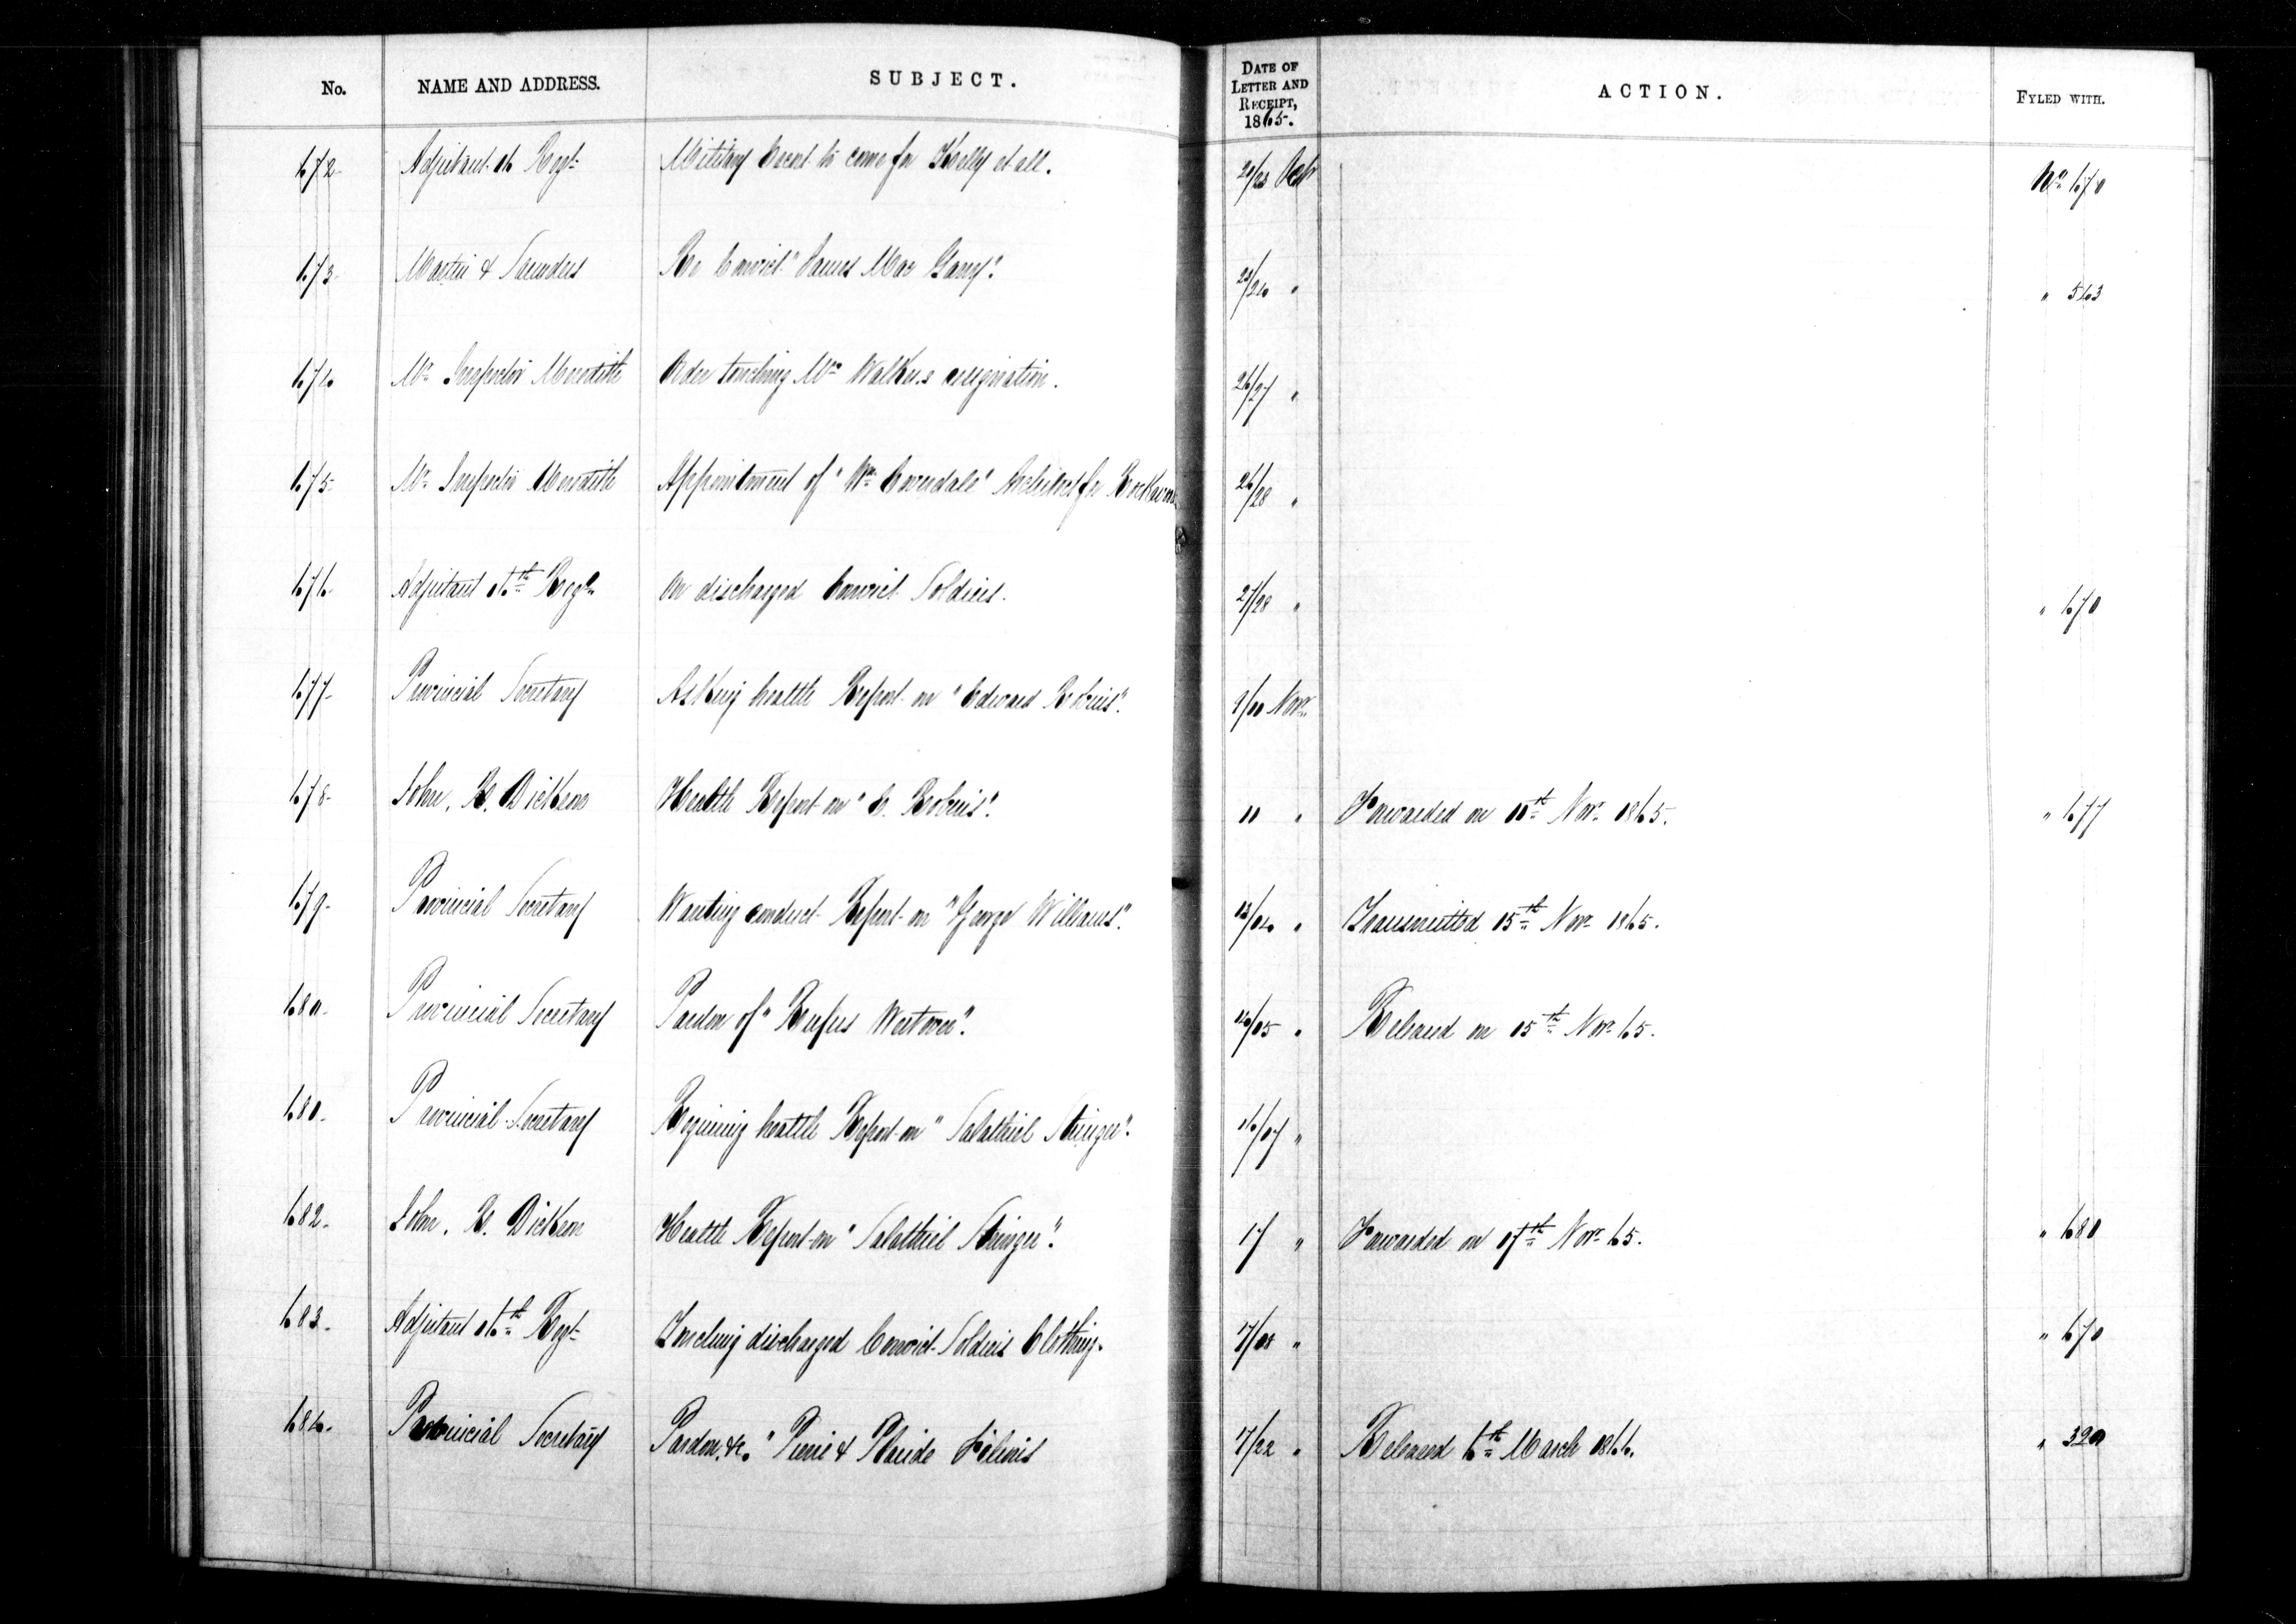 No. NAME AND ADDRESS. SUBJECT. DATE OF LETTER AND RECEIPT, 1865. ACTION. FYLED WITH.
672 Adjutant 16 Regt. Military Escort to come for Kelly et all. Oct No. 670
673 Martin & Saunders Re Convict " James Mac Garry". 23/24 " " 563
674 Mr. Inspector Meredith Order touching Mr. Walkers resignation. 26/27 "
675 Mr. Inspector Meredith Appointment of " Wm. Coverdale" Architect for Rockwood 26/28 "
676 Adjutant 16th Regt. On discharged Convict Soldiers. 27/28 " " 670
677 Provincial Secretary Asking health Report on " Edward Robins". 9/10 Novr.
678 John. R. Dickson Health Report on " E. Robins". 11 " Forwarded on 11th Novr. 1865. " 677
679 Provincial Secretary Wanting conduct Report on "George Williams". 13/14 " Transmitted 15th Novr. 1865.
680 Provincial Secretary Pardon of " Rufus Westover". 14/15 " Released on 15th Novr. 65.
681 Provincial Secretary Requiring health Report on " Salathiel Stringer". 16/17 "
682 John. R. Dickson Health Report on " Salathiel Stringer". 17 " Forwarded on 17th Novr. 65. " 681
683 Adjutant 16th Regt. Touching discharged Convict Soldiers Clothing. 17/18 " " 670
684 Provincial Secretary Pardon &c. " Pierre & Placide 17/22 " Released 6th March 1866. " 391